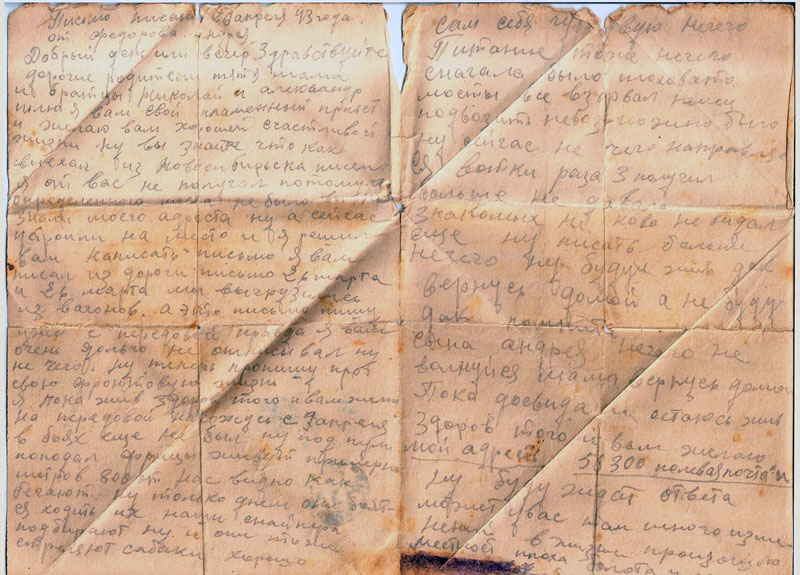 Письмо писано 8 апреля 43 года.
от Федорова Андрея
Добрый день или вечер Здравствуйте
дорогие родители тятя мама
и братцы Николай и Александр
шлю я вам свой пламенный привет
и желаю вам хорошей счастливой
жизни ну вы знайте что как
выехал из Новосибирска писем
я от вас не получал потому что
определенного места не было
знали моего адреста ну а сейчас
на место и я решил
вам написать письмо я вам
писал из дороги письмо 26 марта
и 26 марта мы выгрузились
из вагонов. а это письмо пишу
уже с передовой правда я вам
очень долго не описывал ну
не чего. ну теперь пропишу про
свою фронтовую жизнь
я пока жив здоров того и вам желаю
на передовой нахожусь с 7 апреля
в боях еще не был ну под пули
попадал фрицы живут примерно
метров 800 от нас видно как
бегают. ну только днем они боят-
ся ходить их наши снайпера
подбирают ну и они тоже
стреляют сабаки хорошо
сам себя чувствую нечего
Питание тоже нечего
сначала было плоховато
мосты все взорвал
подвозить невозможно было
ну сейчас не чего направля
водки раза 3 получил
больше не давали
Знакомых не ково не видал
еще ну писать больше
нечего ну буду жив дак
вернусь домой а не буду
дак
сына андрея нечего не
волнуйся мама вернусь домой
Пока досвидания остаюсь жив
здоров того и вам желаю
мой адрес 58300 полевая почта "н
Ну буду ждать ответа
может у вас там много
в жизни произошло
местность плоха болота и